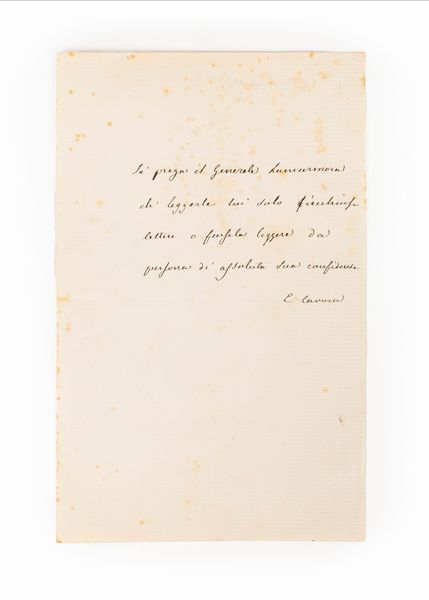 Si prega il Generale Lamarmora
di leggerla lui solo
lettera o farsela leggere da
persona di assoluta sua confidenza
C Cavour